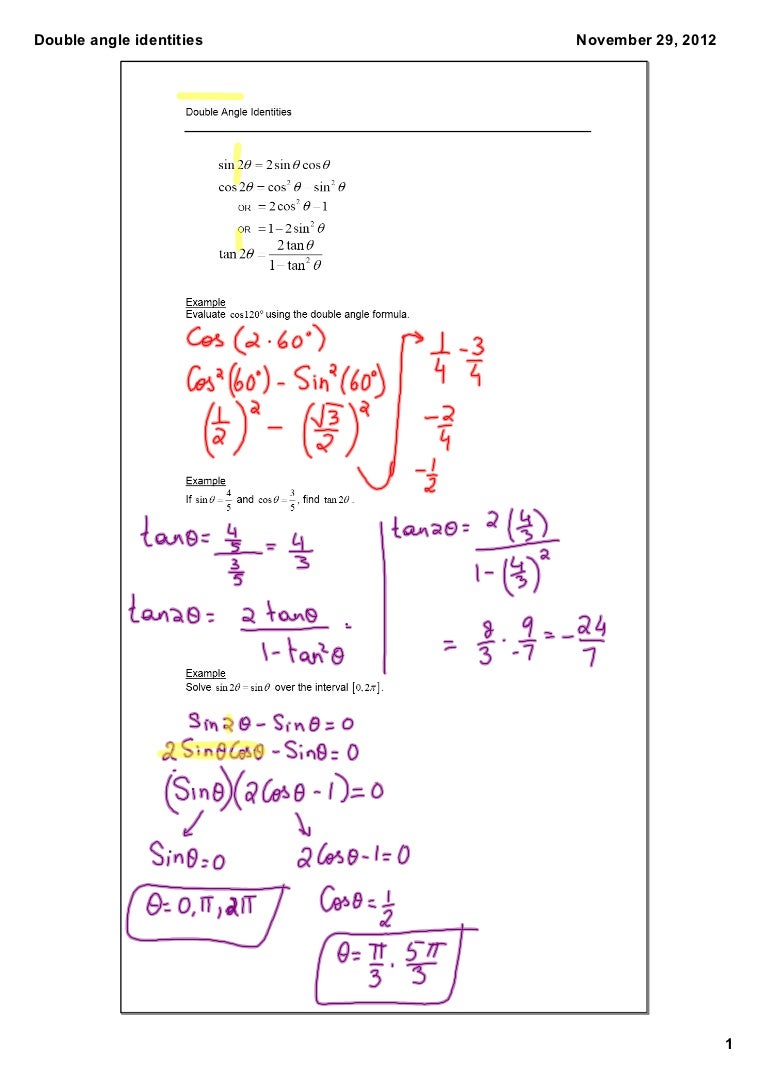 Double angle identities
November 29, 2012
Double Angle Identities
sin 2θ = 2 sin θ cos θ
cos 2θ = cos² θ  sin² θ
OR = 2 cos² θ – 1
OR = 1 – 2 sin² θ
tan 2θ = 2 tan θ / 1 – tan² θ
Example
Evaluate cos120° using the double angle formula.
Cos (2·60°)
Cos²(60°) - Sin²(60°)
(1/2)² - (√3/2)²
1/4 - 3/4
-2/4
-1/2
Example
If sin θ = 4/5 and cos θ = 3/5, find tan 2θ.
tanθ = 4/5 / 3/5 = 4/3
tan2θ = 2 tanθ / 1 - tan²θ
tan2θ = 2(4/3) / 1 - (4/3)²
= 8/3 · 9/-7 = -24/7
Example
Solve sin 2θ = sin θ over the interval [0, 2π].
Sin2θ - Sinθ = 0
2SinθCosθ - Sinθ = 0
(Sinθ)(2Cosθ - 1) = 0
Sinθ = 0
2Cosθ - 1 = 0
θ = 0, π, 2π
Cosθ = 1/2
θ = π/3, 5π/3
1